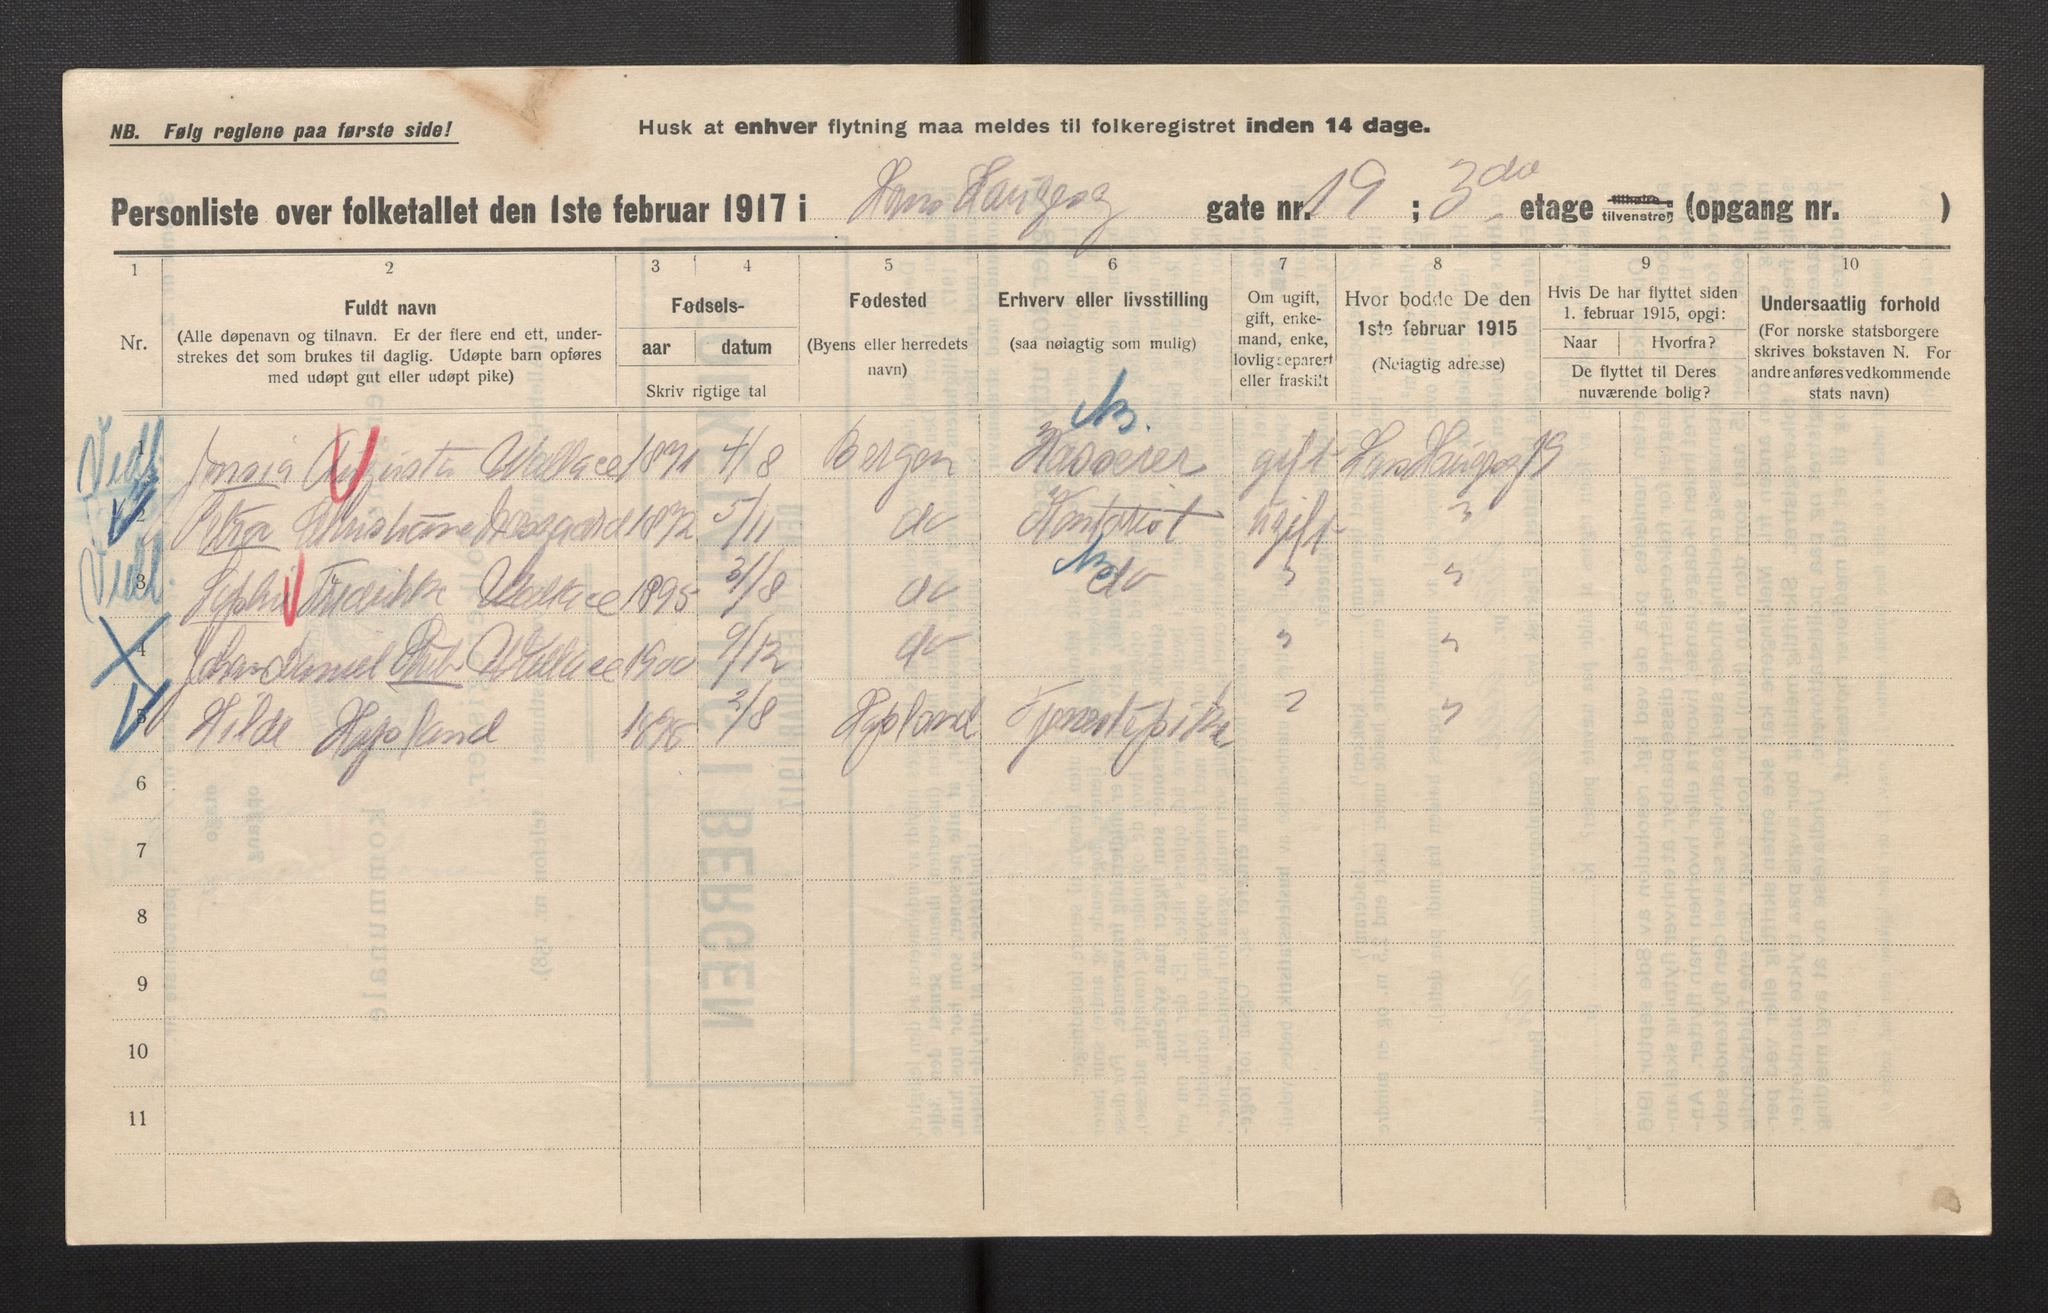 NB. Følg reglene paa første side!
Husk at enhver flytning maa meldes til folkeregistret inden 14 dage.
Personliste over folketallet den 1ste februar 1917 i Hans Haugesg gate nr. 19 ; 3 die etage tilhøire, tilvenstre, (opgang nr. )
1 2 3 4 5 6 7 8 9 10
Nr.
Fuldt navn
(Alle døpenavn og tilnavn. Er der flere end ett, under-
strekes det som brukes til daglig. Udøpte barn opføres
med udøpt gut eller udøpt pike)
Fødsels-
aar datum
Skriv rigtige tal
Fødested
(Byens eller herredets
navn)
Erhverv eller livsstilling
(saa nøiagtig som mulig)
Om ugift,
gift, enke-
mand, enke,
lovlig separert
eller fraskilt
Hvor bodde De den
1ste februar 1915
(Nøiagtig adresse)
Hvis De har flyttet siden
1. februar 1915, opgi:
Naar Hvorfra?
De flyttet til Deres
nuværende bolig?
Undersaatlig forhold
(For norske statsborgere
skrives bokstaven N. For
andre anføres vedkommende
stats navn)
1 Augusta Wallace 1871 4/8 Bergen Kasserer gift Hans Haugesg 19
2 Petra Christiane 1872 5/11 do Kontorist ugift "
3 Sophie Fredrikke Wallace 1895 3/8 do do " "
4 Johan Daniel Wallace 1900 9/12 do " "
5 Hilde Hysland 1898 3/8 Hysland Tjenestepike " "
6
7
8
9
10
11